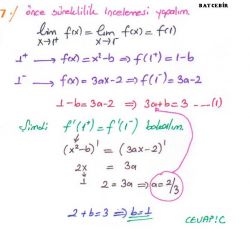 BAYCEBİR
7-) Önce süreklilik incelemesi yapalım
lim f(x) = lim f(x) = f(1)
x→1⁺ x→1⁻
1⁺ → f(x) = x²-b ⇒ f(1⁺) = 1-b
1⁻ → f(x) = 3ax-2 ⇒ f(1⁻) = 3a-2
1-b = 3a-2 ⇒ 3a+b = 3 ---- (1)
Şimdi f'(1⁺) = f'(1⁻) bakalım.
(x²-b)' = (3ax-2)'
2x = 3a
1 2 = 3a ⇒ a = 2/3
2+b = 3 ⇒ b = 1
CEVAP: C